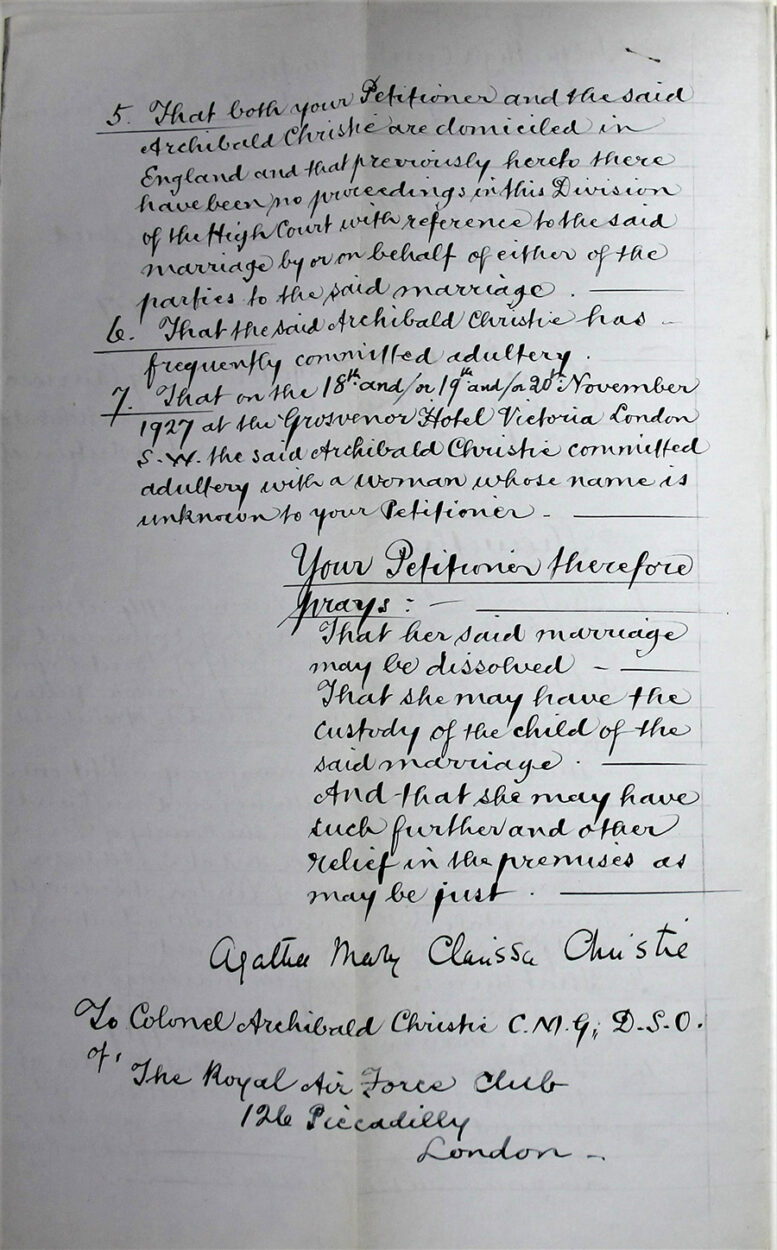 5. That both your Petitioner and the said
Archibald Christie are domiciled in
England and that previously hereto there
have been no proceedings in this Division
of the High Court with reference to the said
marriage by or on behalf of either of the
parties to the said marriage.
6. That the said Archibald Christie has
frequently committed adultery.
7. That on the 18th and/or 19th and/or 20th November
1927 at the Grosvenor Hotel Victoria London
S.W. the said Archibald Christie committed
adultery with a woman whose name is
unknown to your Petitioner -
Your Petitioner therefore
prays: -
That her said marriage
may be dissolved -
That she may have the
custody of the child of the
said marriage.
And that she may have
such further and other
relief in the premises as
may be just.
Agatha Mary Clarissa Christie
To Colonel Archibald Christie C.M.G; D.S.O.
of,
The Royal Air Force Club
126 Piccadilly
London -